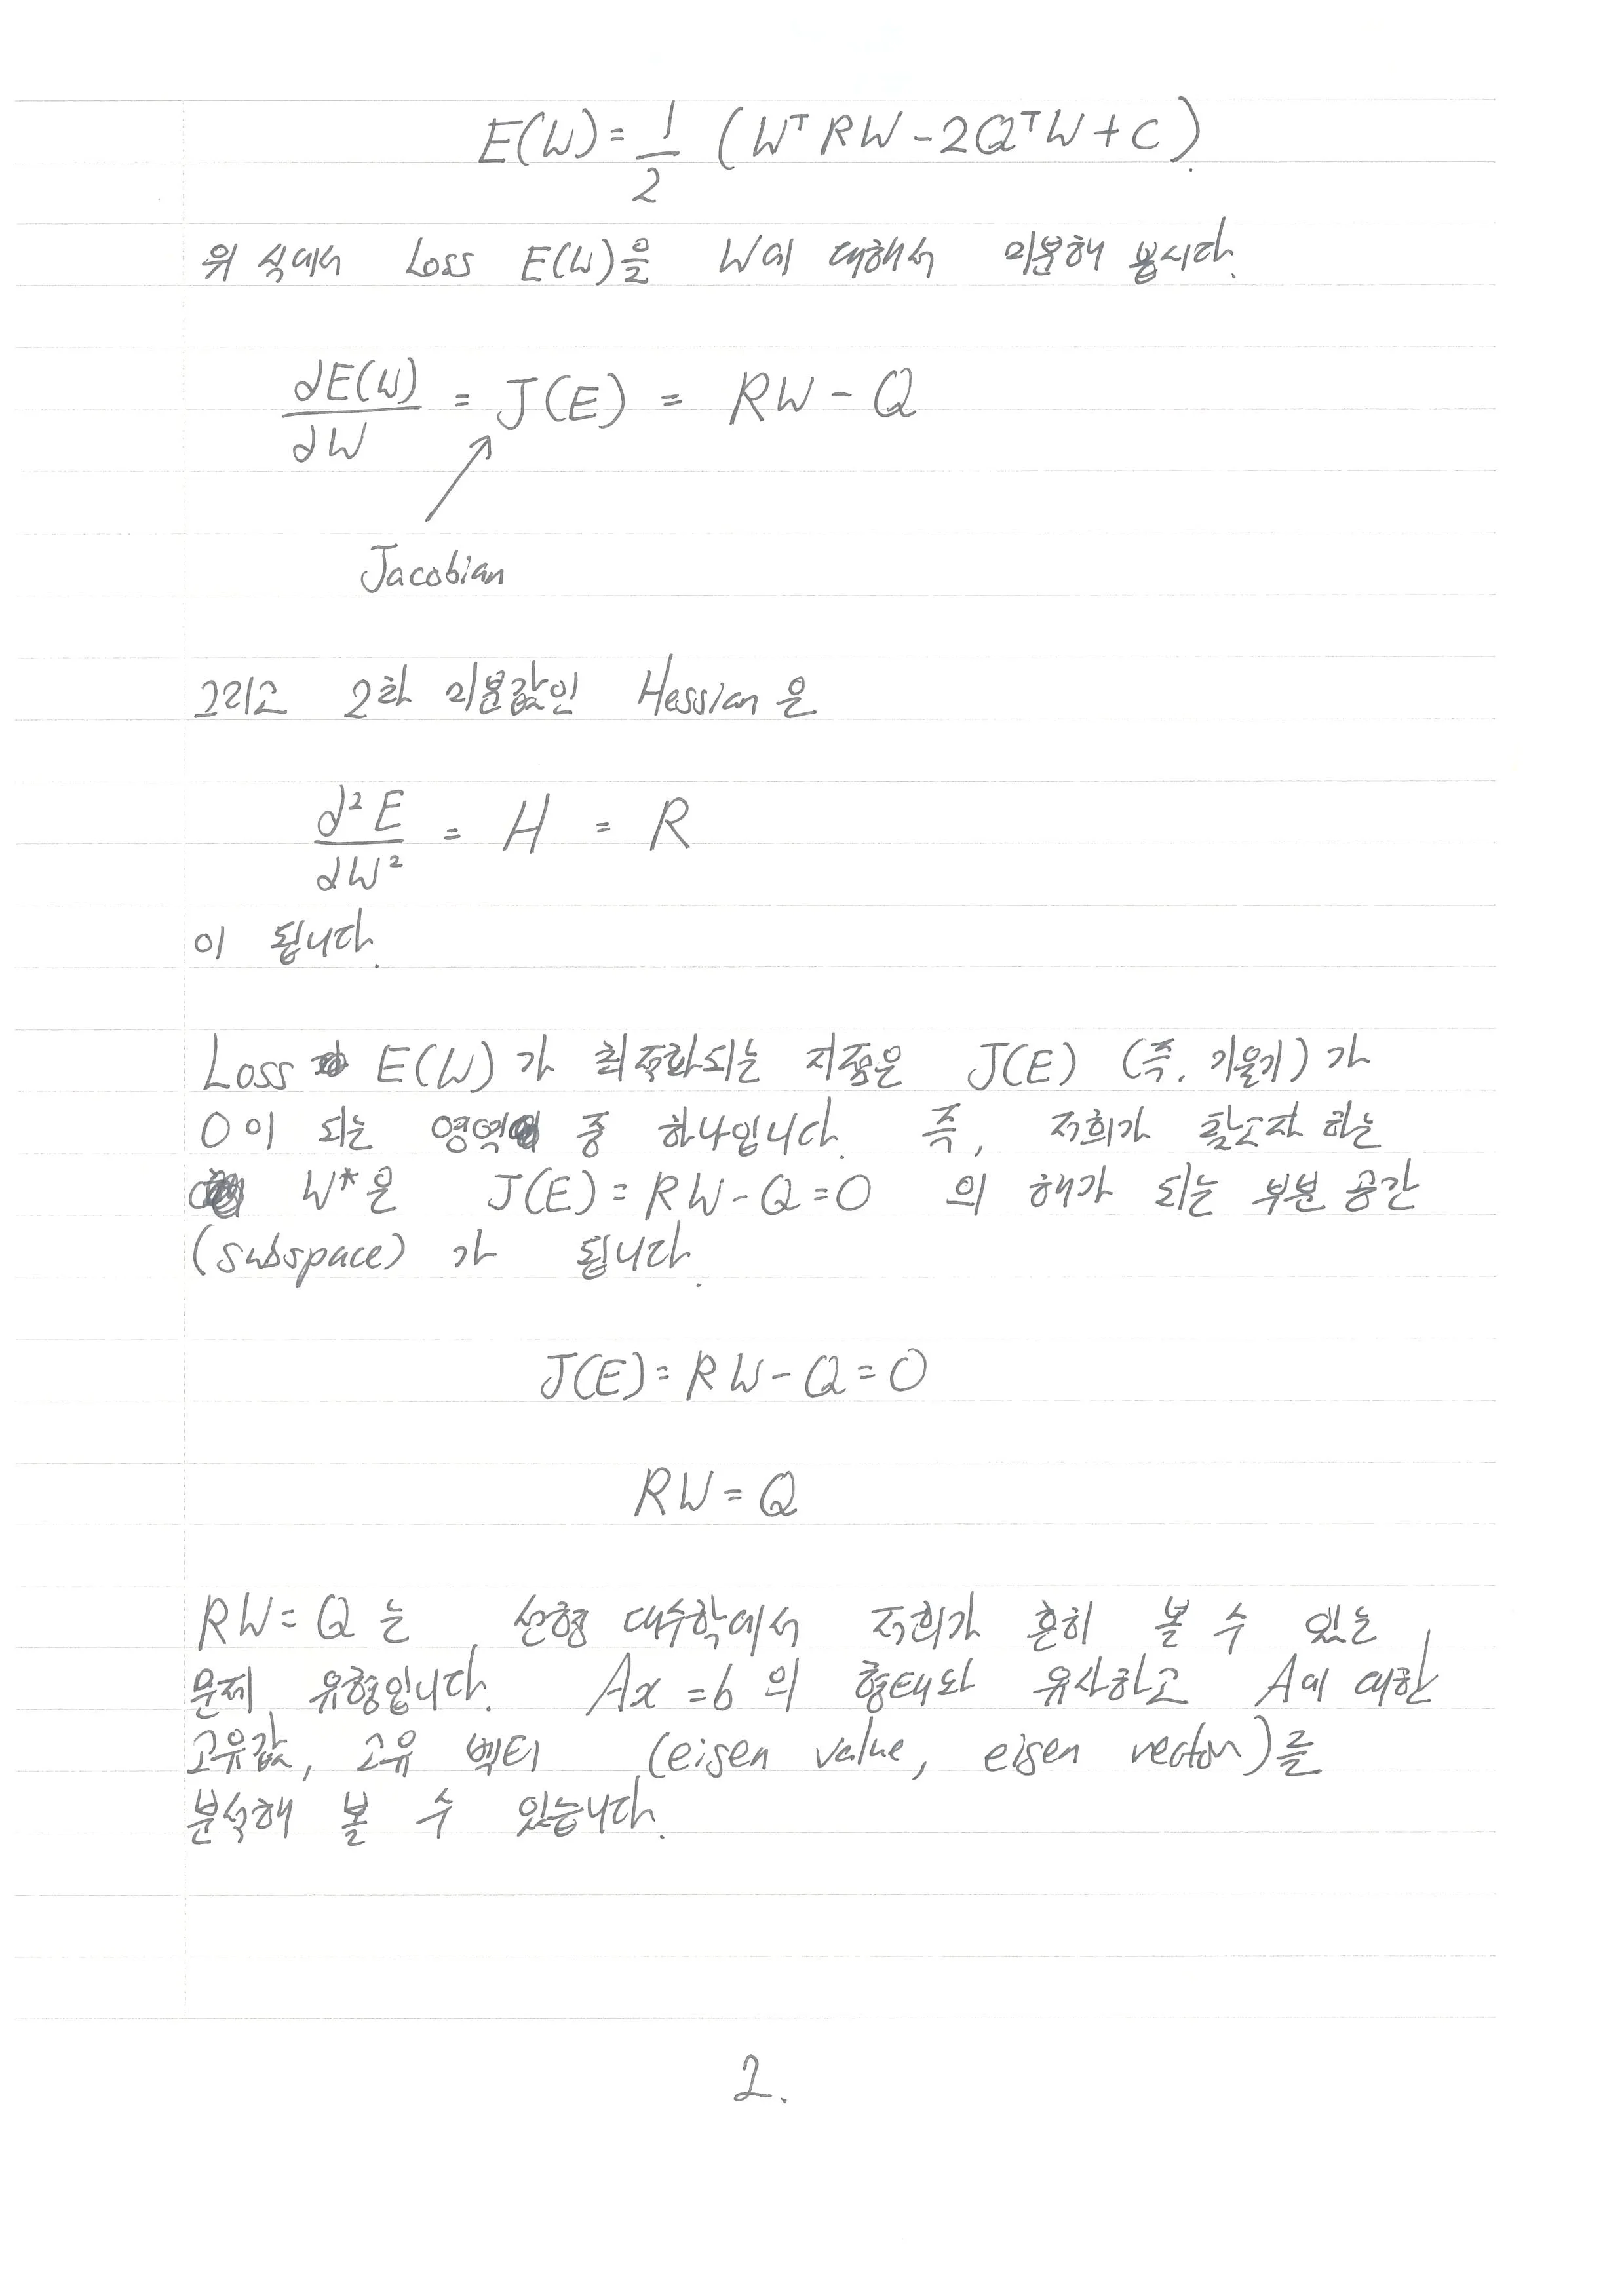 E(W) = 1/2 (WᵀRW - 2QᵀW + C).
위 식에서 Loss E(W)을 W에 대해서 미분해 봅시다.
∂E(W)/∂W = J(E) = RW - Q
Jacobian
그리고 2차 미분값인 Hessian은
∂²E/∂W² = H = R
이 됩니다.
Loss E(W)가 최적화되는 지점은 J(E) (즉, 기울기)가
0이 되는 영역 중 하나입니다. 즉, 저희가 찾고자 하는
W*은 J(E) = RW - Q = 0 의 해가 되는 부분 공간
(subspace) 가 됩니다.
J(E) = RW - Q = 0
RW = Q
RW = Q는 선형 대수학에서 저희가 흔히 볼 수 있는
문제 유형입니다. Ax = b의 형태와 유사하고 A에 대한
고유값, 고유 벡터 (eisen value, eisen vector)를
분석해 볼 수 있습니다.
2.